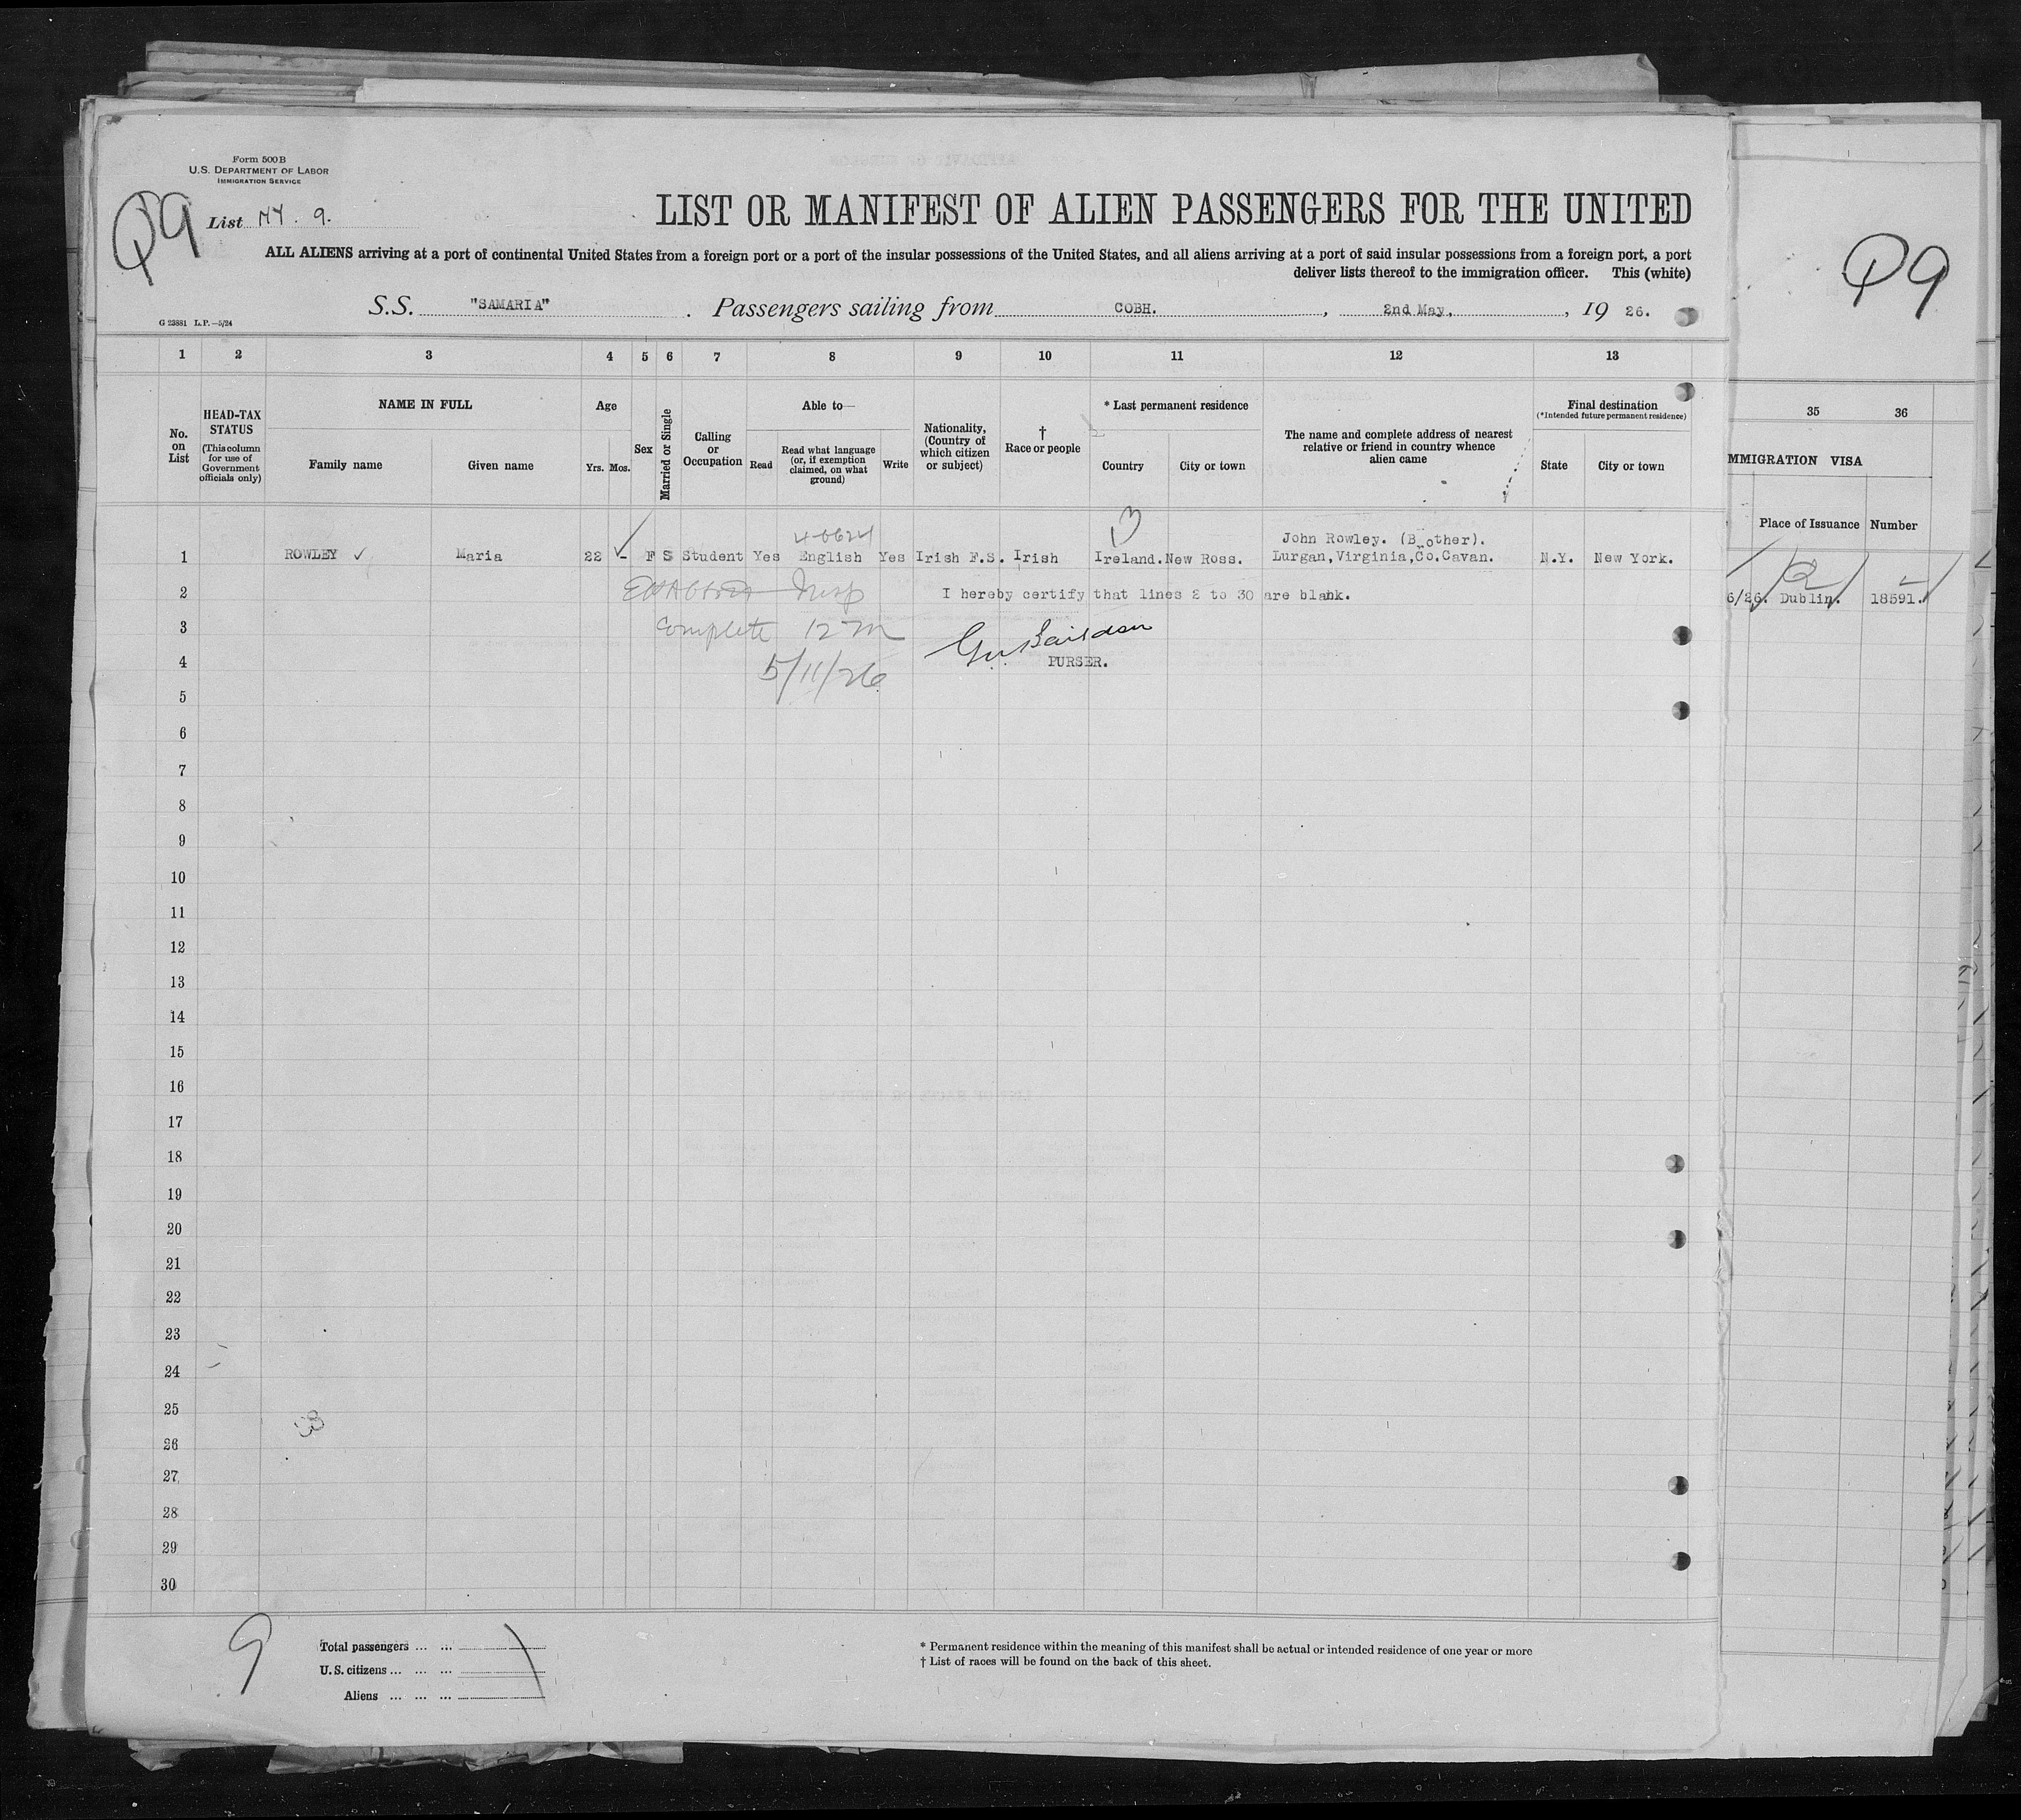 Form 500 B
U.S. DEPARTMENT OF LABOR
IMMIGRATION SERVICE
Q9
List NY. 9.
LIST OR MANIFEST OF ALIEN PASSENGERS FOR THE UNITED
ALL ALIENS arriving at a port of continental United States from a foreign port or a port of the insular possessions of the United States, and all aliens arriving at a port of said insular possessions from a foreign port, a port
deliver lists thereof to the immigration officer. This (white)
Q9
S.S. "SAMARIA". Passengers sailing from COBH., 2nd May., 19 26.
G 23881 L.P.—5/24
1 2 3 4 5 6 7 8 9 10 11 12 13
No. on List
HEAD-TAX STATUS (This column for use of Government officials only)
NAME IN FULL
Family name
Given name
Age
Yrs. Mos.
Sex
Married or Single
Calling or Occupation
Able to—
Read
Read what language (or, if exemption claimed, on what ground)
Write
Nationality, (Country of which citizen or subject)
† Race or people
* Last permanent residence
Country
City or town
The name and complete address of nearest relative or friend in country whence alien came
Final destination
(*Intended future permanent residence)
State
City or town
35 36
MMIGRATION VISA
Place of Issuance
Number
John Rowley. (B other).
1 ROWLEY ✓ Maria 22 - F S Student Yes English Yes Irish F.S. Irish Ireland. New Ross. Lurgan,Virginia,Co.Cavan. N.Y. New York.
6/26. Dublin. 18591.
2 I hereby certify that lines 2 to 30 are blank.
3 Complete 12 M
4 PURSER.
5/11/26
5
6
7
8
9
10
11
12
13
14
15
16
17
18
19
20
21
22
23
24
25
26
27
28
29
30
9
Total passengers ... ...
U.S. citizens ... ... ...
Aliens ... ... ...
* Permanent residence within the meaning of this manifest shall be actual or intended residence of one year or more
† List of races will be found on the back of this sheet.